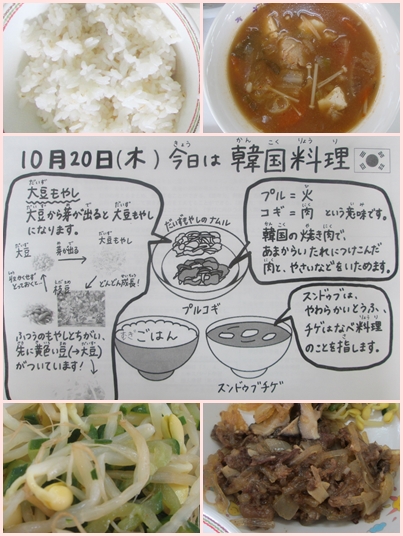 10月20日(木) 今日は 韓国料理
きょう かんこくりょうり
だいず
大豆もやし
大豆から芽が出ると大豆もやし
になります。
大豆 芽が出る 大豆もやし
枝豆 どんどん成長!
ふつうのもやしとちがい、
先に黄色い豆(→大豆)
がついています!
だいずもやしのナムル
プルコギ
むぎごはん
スンドゥブチゲ
プル = 火
コギ = 肉 という意味です。
韓国の焼き肉で、
あまからいたれにつけこんだ
肉と、やさいなどをいためます。
スンドゥブは、
やわらかいとうふ、
チゲはなべ料理
のことを指します。